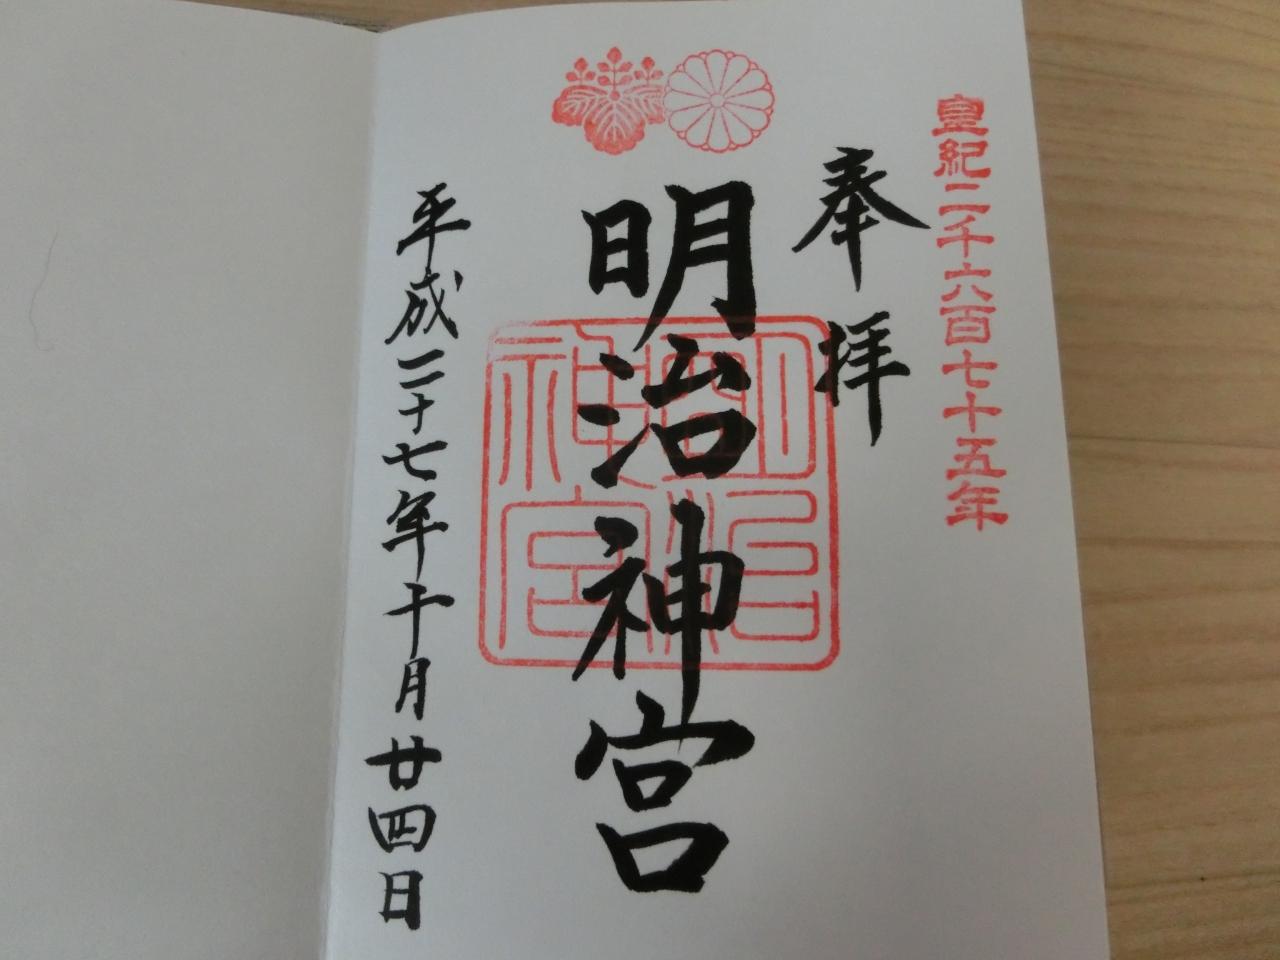 皇紀二千六百七十五年
奉拝
明治神宮
明治神宮
平成二十七年十月廿四日